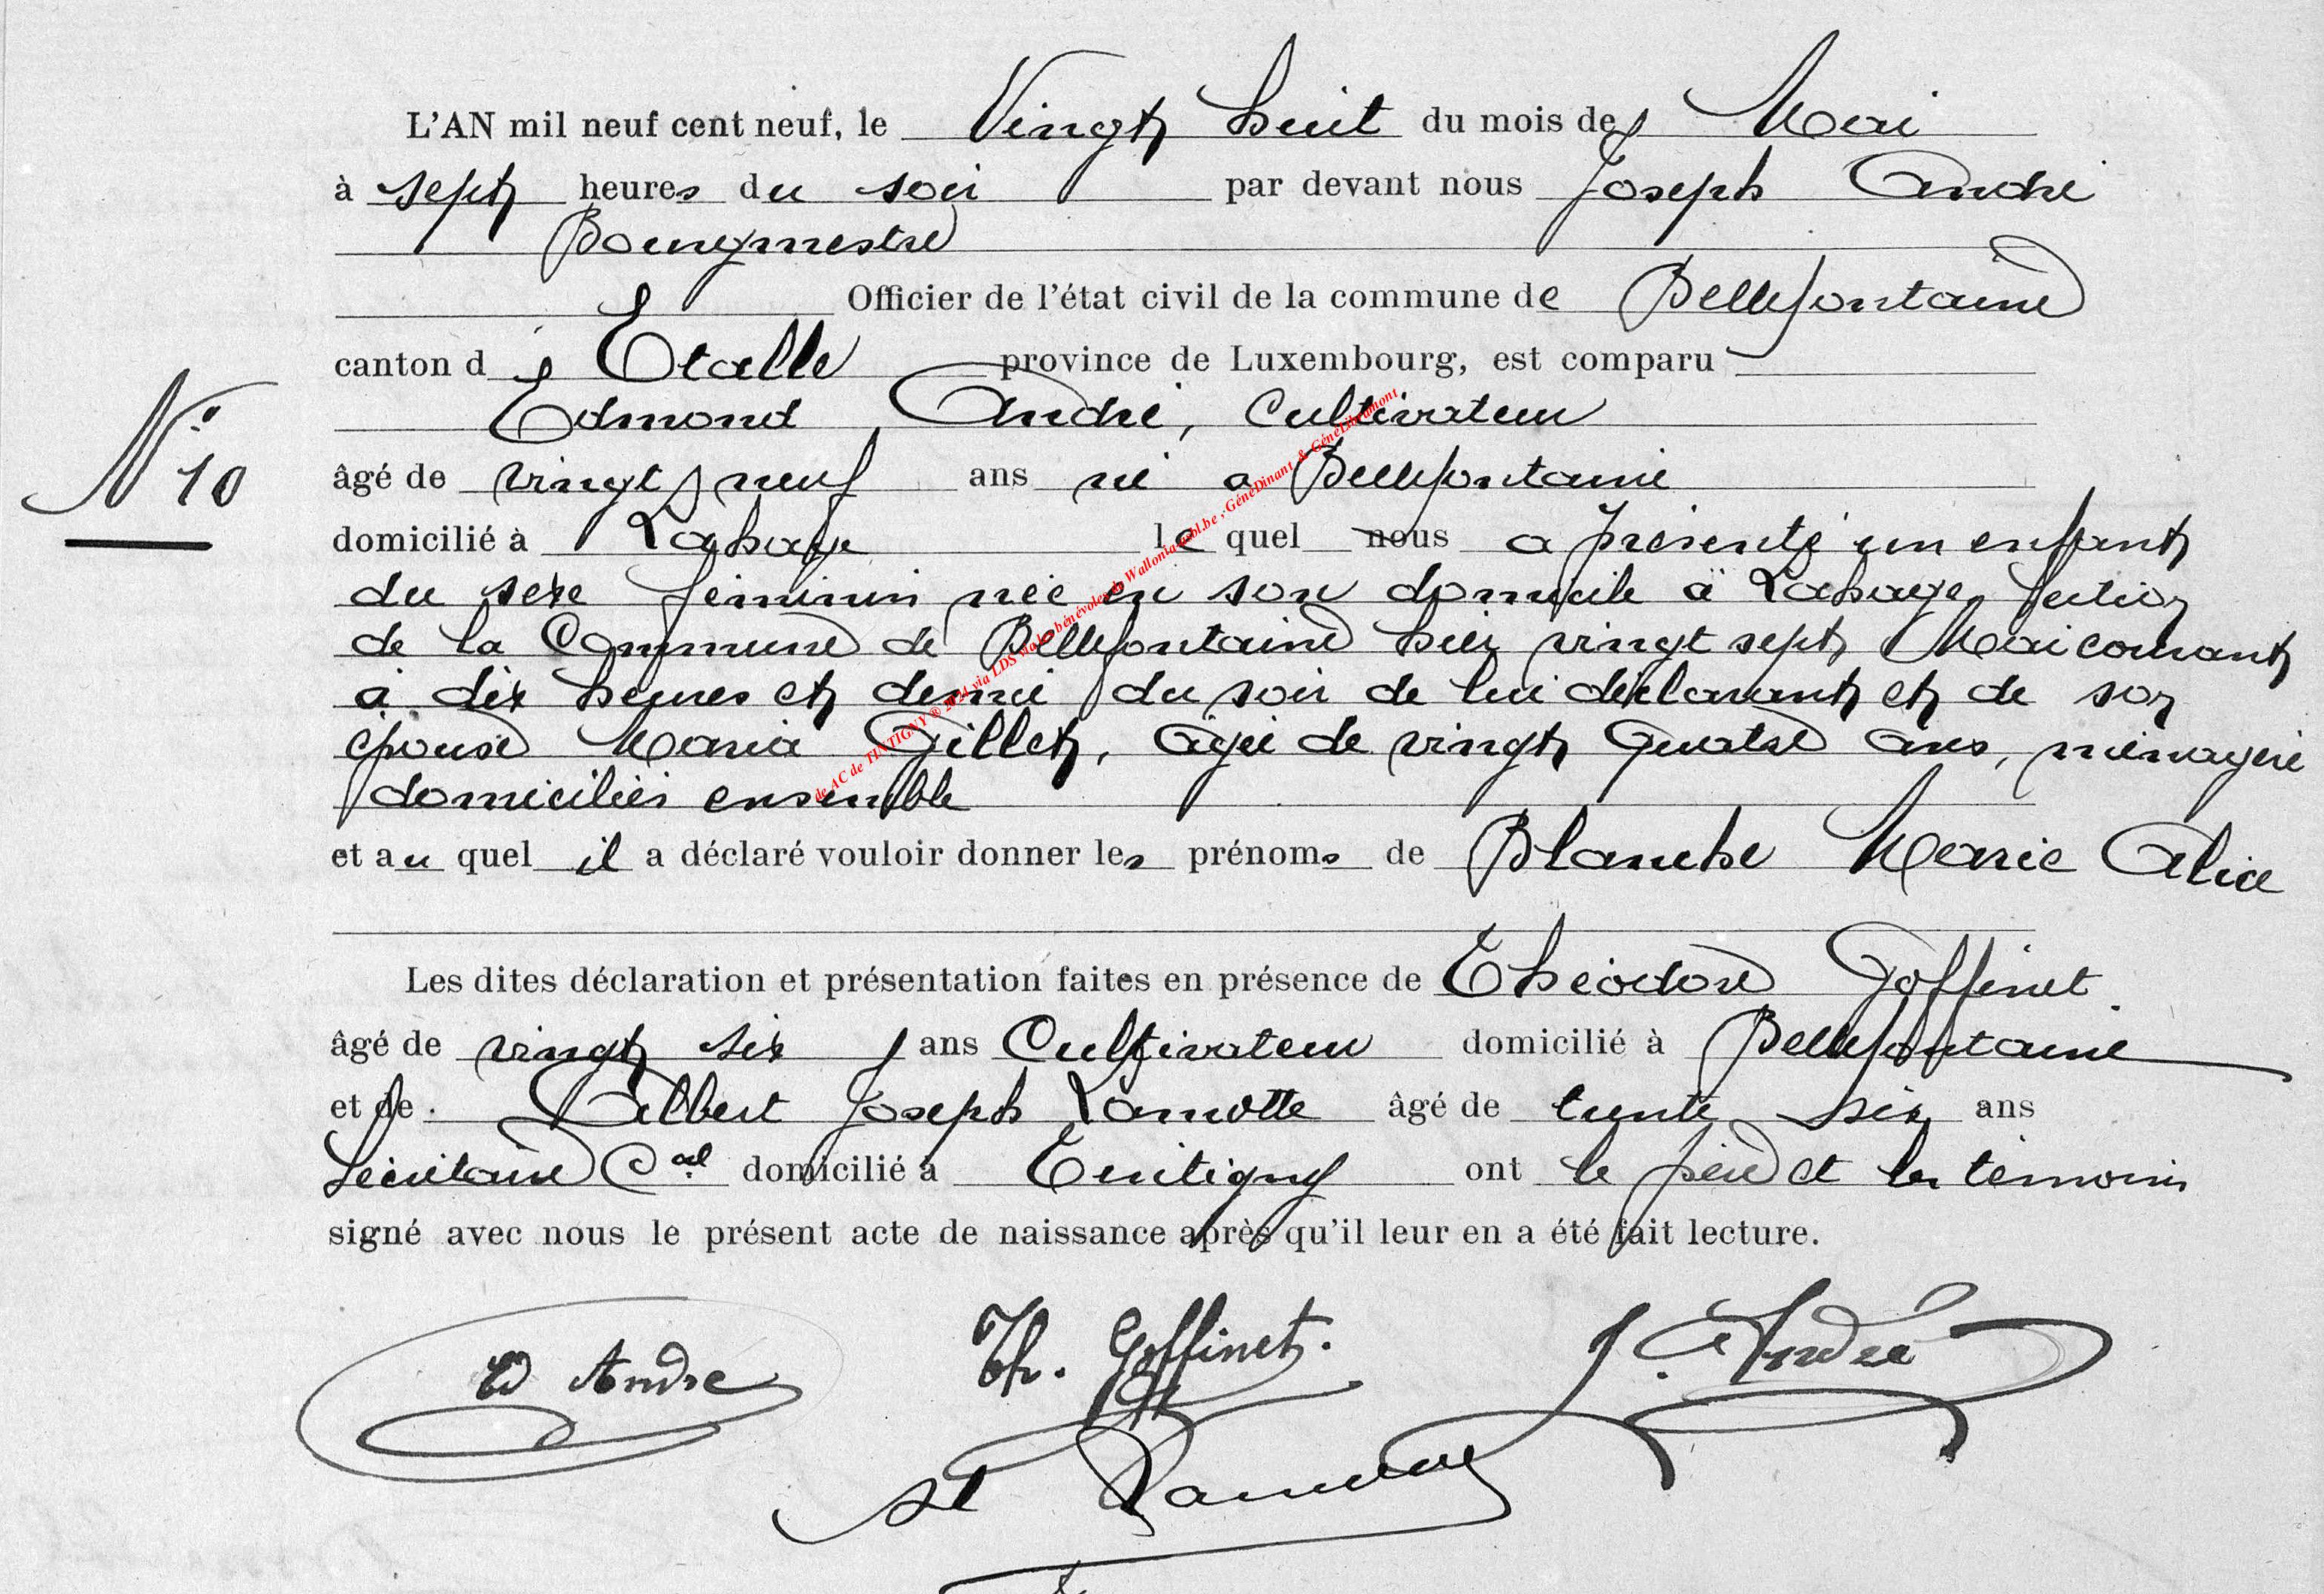 L'AN mil neuf cent neuf, le Vingt huit du mois de Mai
à sept heures du soir par devant nous Joseph André
Bourgmestre
Officier de l'état civil de la commune de Bellefontaine
canton d'Etalle province de Luxembourg, est comparu
Edmond André, Cultivateur
N° 10
âgé de vingt neuf ans né a Bellefontaine
domicilié à Lahage le quel nous a présenté un enfant
du sexe féminin née en son domicile à Lahage section
de la Commune de Bellefontaine hier vingt sept Mai courant
à dix heures et demie du soir de lui déclarant et de son
épouse Maria Gillet, âgée de vingt quatre ans, ménagère
domiciliés ensemble
et au quel il a déclaré vouloir donner les prénoms de Blanche Marie Alice
Les dites déclaration et présentation faites en présence de Théodore Goffinet
âgé de vingt six ans Cultivateur domicilié à Bellefontaine
et de Albert Joseph Lamotte âgé de trente six ans
Secrétaire Cal domicilié à Tintigny ont le père et les témoins
signé avec nous le présent acte de naissance après qu'il leur en a été fait lecture.
Ed André Th. Goffinet. J. André
de AC de TINTIGNY ® 2024 via LDS via les bénévoles de Wallonia asbl.be , GénéDinant & GénéLibramont